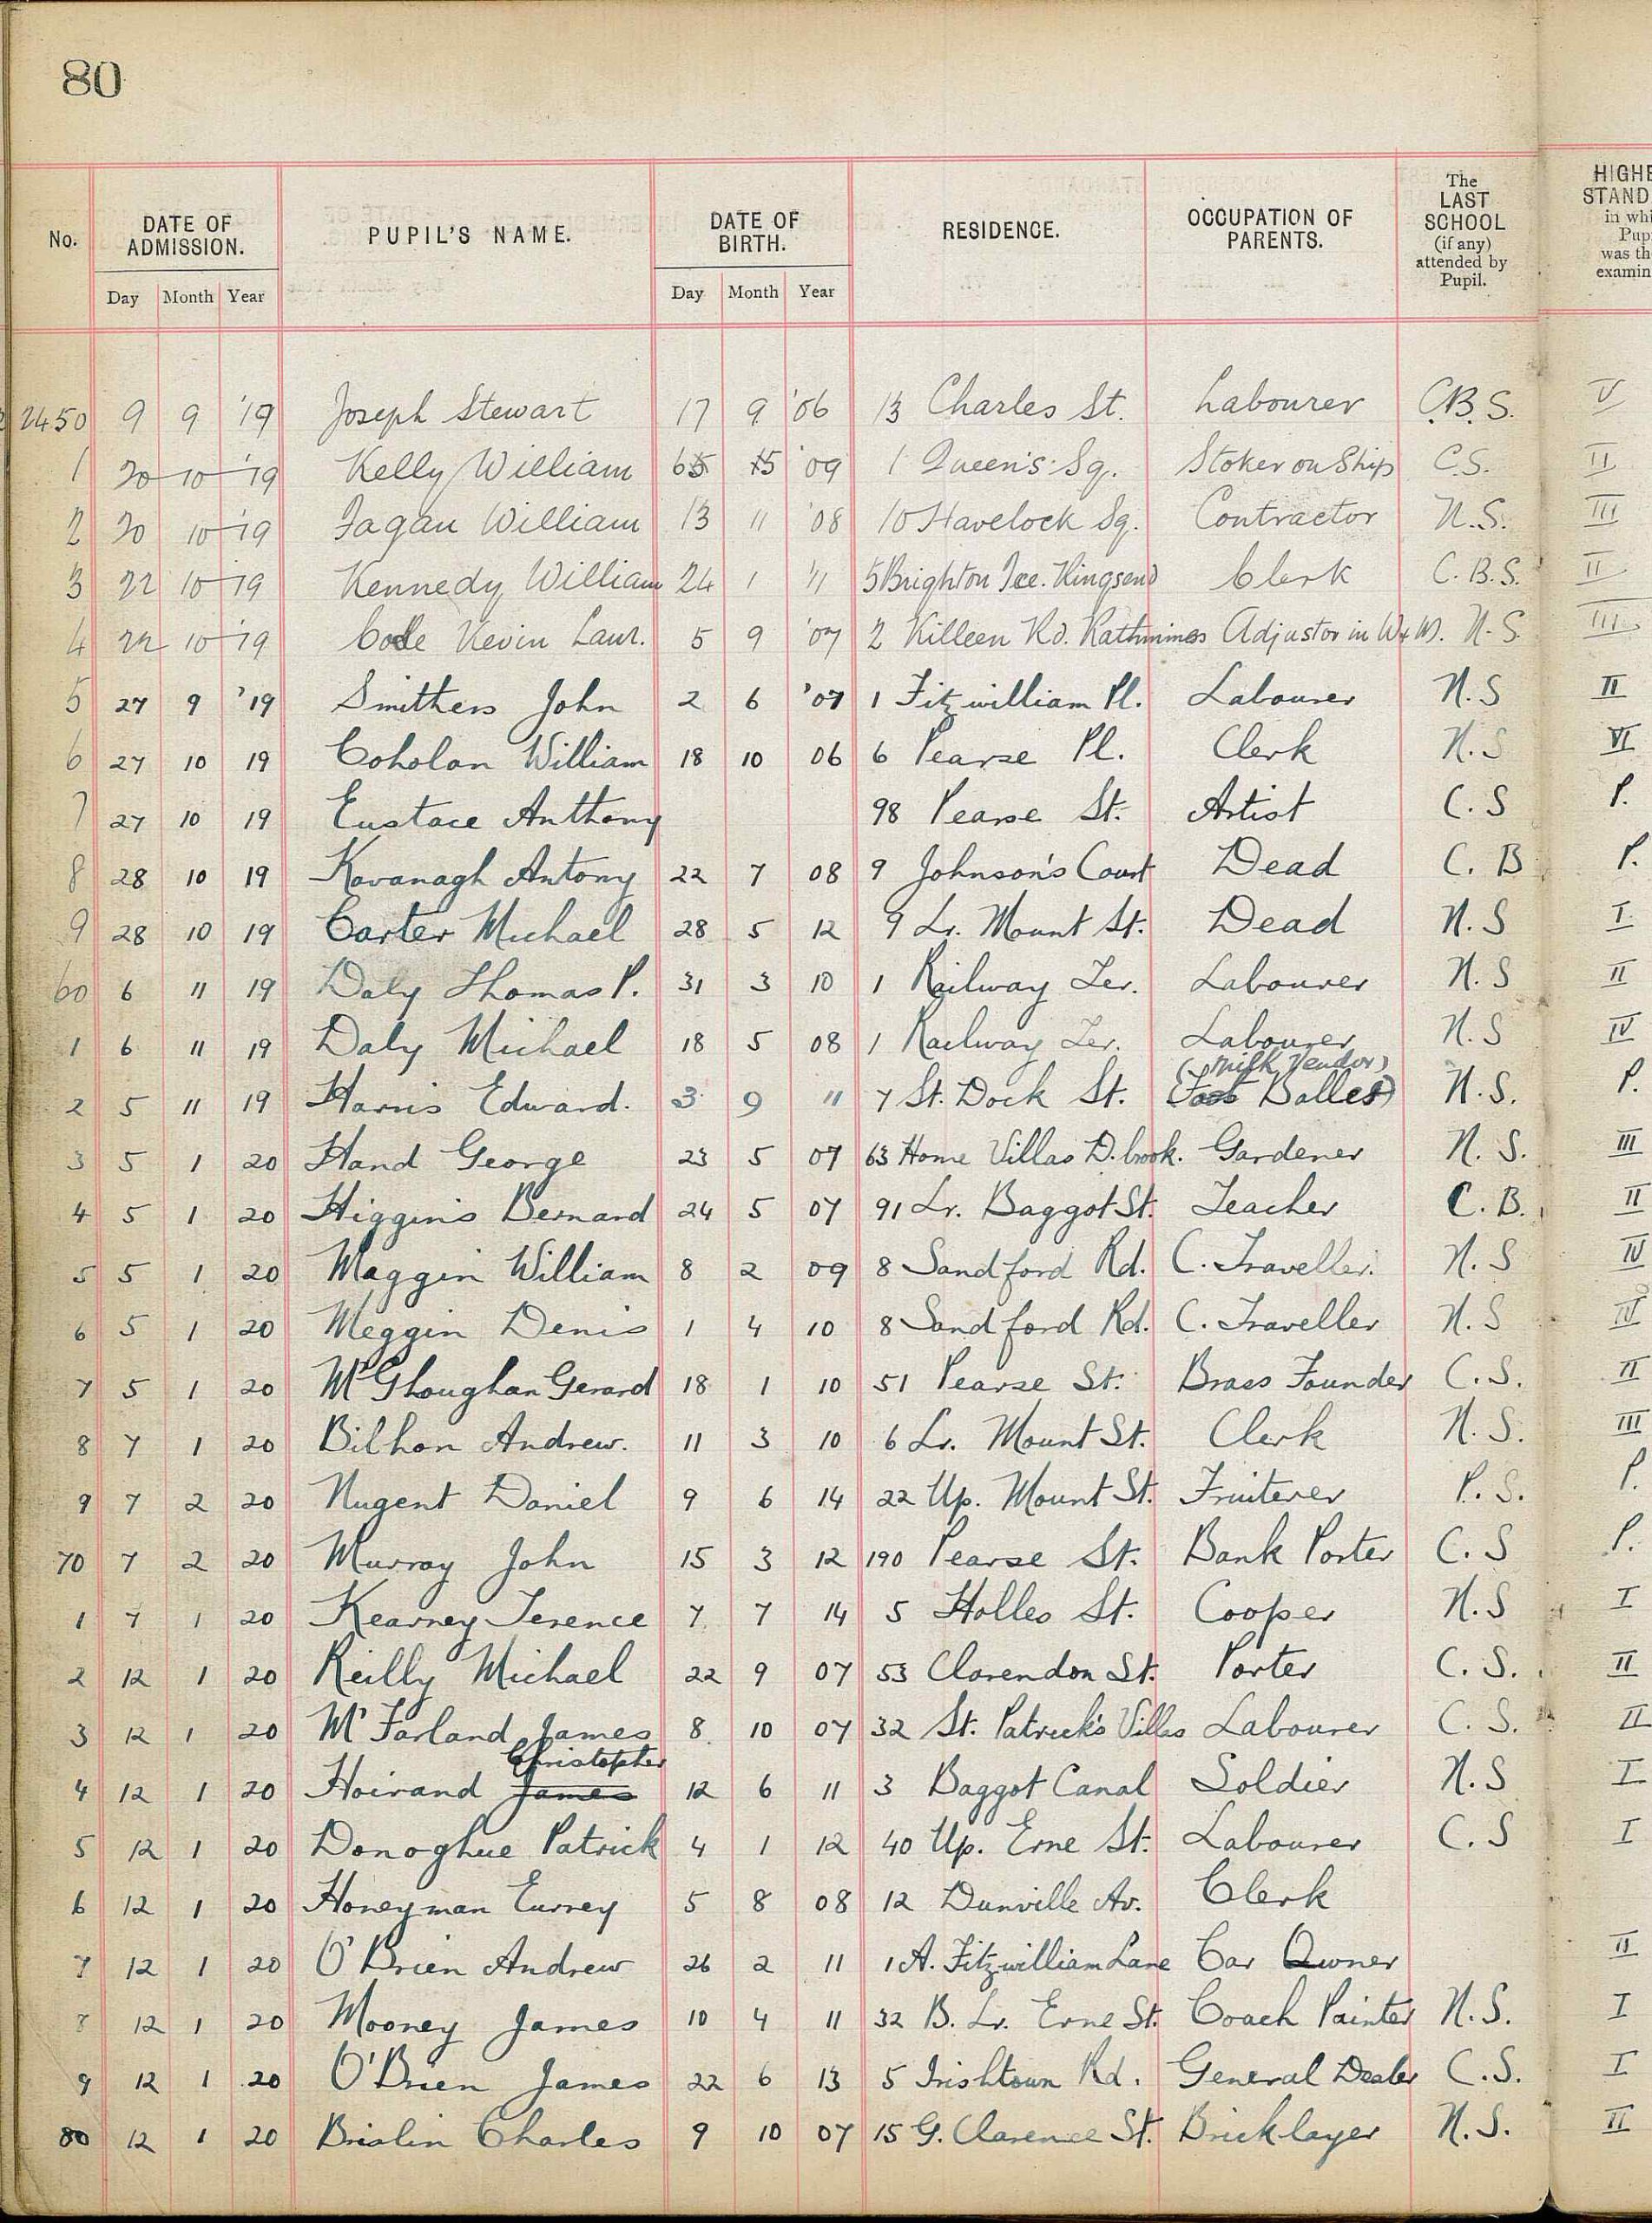 80
No. DATE OF ADMISSION. PUPIL'S NAME. DATE OF BIRTH. RESIDENCE. OCCUPATION OF PARENTS. The LAST SCHOOL (if any) attended by Pupil. HIGHE STAND in whi Pup was th examin
Day Month Year Day Month Year
2450 9 9 '19 Joseph Stewart 17 9 '06 13 Charles St. Labourer C.B.S. V
1 20 10 '19 Kelly William 6 5 '09 1 Queen's Sq. Stoker on Ship C.S. II
2 20 10 '19 Fagan William 13 11 '08 10 Havelock Sq. Contractor N.S. III
3 22 10 '19 Kennedy William 24 1 '11 5 Brighton Tce. Ringsend Clerk C.B.S. II
4 22 10 '19 Kevin Laur. 5 9 '07 2 Killeen Rd. Rathmines Adjustor in W & M. N.S. III
5 27 9 '19 Smithers John 2 6 '07 1 Fitzwilliam Pl. Labourer N.S II
6 27 10 19 Coholan William 18 10 06 6 Pearse Pl. Clerk N.S VI
7 27 10 19 Eustace Anthony 98 Pearse St. Artist C.S P.
8 28 10 19 Kavanagh Antony 22 7 08 9 Johnson's Court Dead C.B P.
9 28 10 19 Carter Michael 28 5 12 9 Lr. Mount St. Dead N.S I
60 6 11 19 Daly Thomas P. 31 3 10 1 Railway Ter. Labourer N.S II
1 6 11 19 Daly Michael 18 5 08 1 Railway Ter. Labourer N.S IV
(Milk Vendor)
2 5 11 19 Harris Edward. 3 9 11 7 St. Dock St. N.S. P.
3 5 1 20 Hand George 23 5 07 63 Home Villas D.brook. Gardener N.S. III
4 5 1 20 Higgins Bernard 24 5 07 91 Lr. Baggot St. Teacher C.B. II
5 5 1 20 Maggin William 8 2 09 8 Sandford Rd. C. Traveller. N.S IV
6 5 1 20 Meggin Denis 1 4 10 8 Sandford Rd. C. Traveller N.S IV
7 5 1 20 McGhoughan Gerard 18 1 10 51 Pearse St. Brass Founder C.S. II
8 7 1 20 Bilhon Andrew. 11 3 10 6 Lr. Mount St. Clerk N.S. III
9 7 2 20 Nugent Daniel 9 6 14 22 Up. Mount St. Fruiterer P.S. P.
70 7 2 20 Murray John 15 3 12 190 Pearse St. Bank Porter C.S P.
1 7 1 20 Kearney Terence 7 7 14 5 Holles St. Cooper N.S I
2 12 1 20 Reilly Michael 22 9 07 53 Clarendon St. Porter C.S. II
3 12 1 20 McFarland James 8 10 07 32 St. Patrick's Villas Labourer C.S. II
Christopher
4 12 1 20 Hoirand James 12 6 11 3 Baggot Canal Soldier N.S I
5 12 1 20 Donoghue Patrick 4 1 12 40 Up. Erne St. Labourer C.S I
6 12 1 20 Honeyman Eurrey 5 8 08 12 Dunville Av. Clerk
7 12 1 20 O'Brien Andrew 26 2 11 1 A. Fitzwilliam Lane Car Owner II
8 12 1 20 Mooney James 10 4 11 32 B. Lr. Erne St. Coach Painter N.S. I
9 12 1 20 O'Brien James 22 6 13 5 Irishtown Rd. General Dealer C.S. I
80 12 1 20 Brislin Charles 9 10 07 15 G. Clarence St. Bricklayer N.S. II